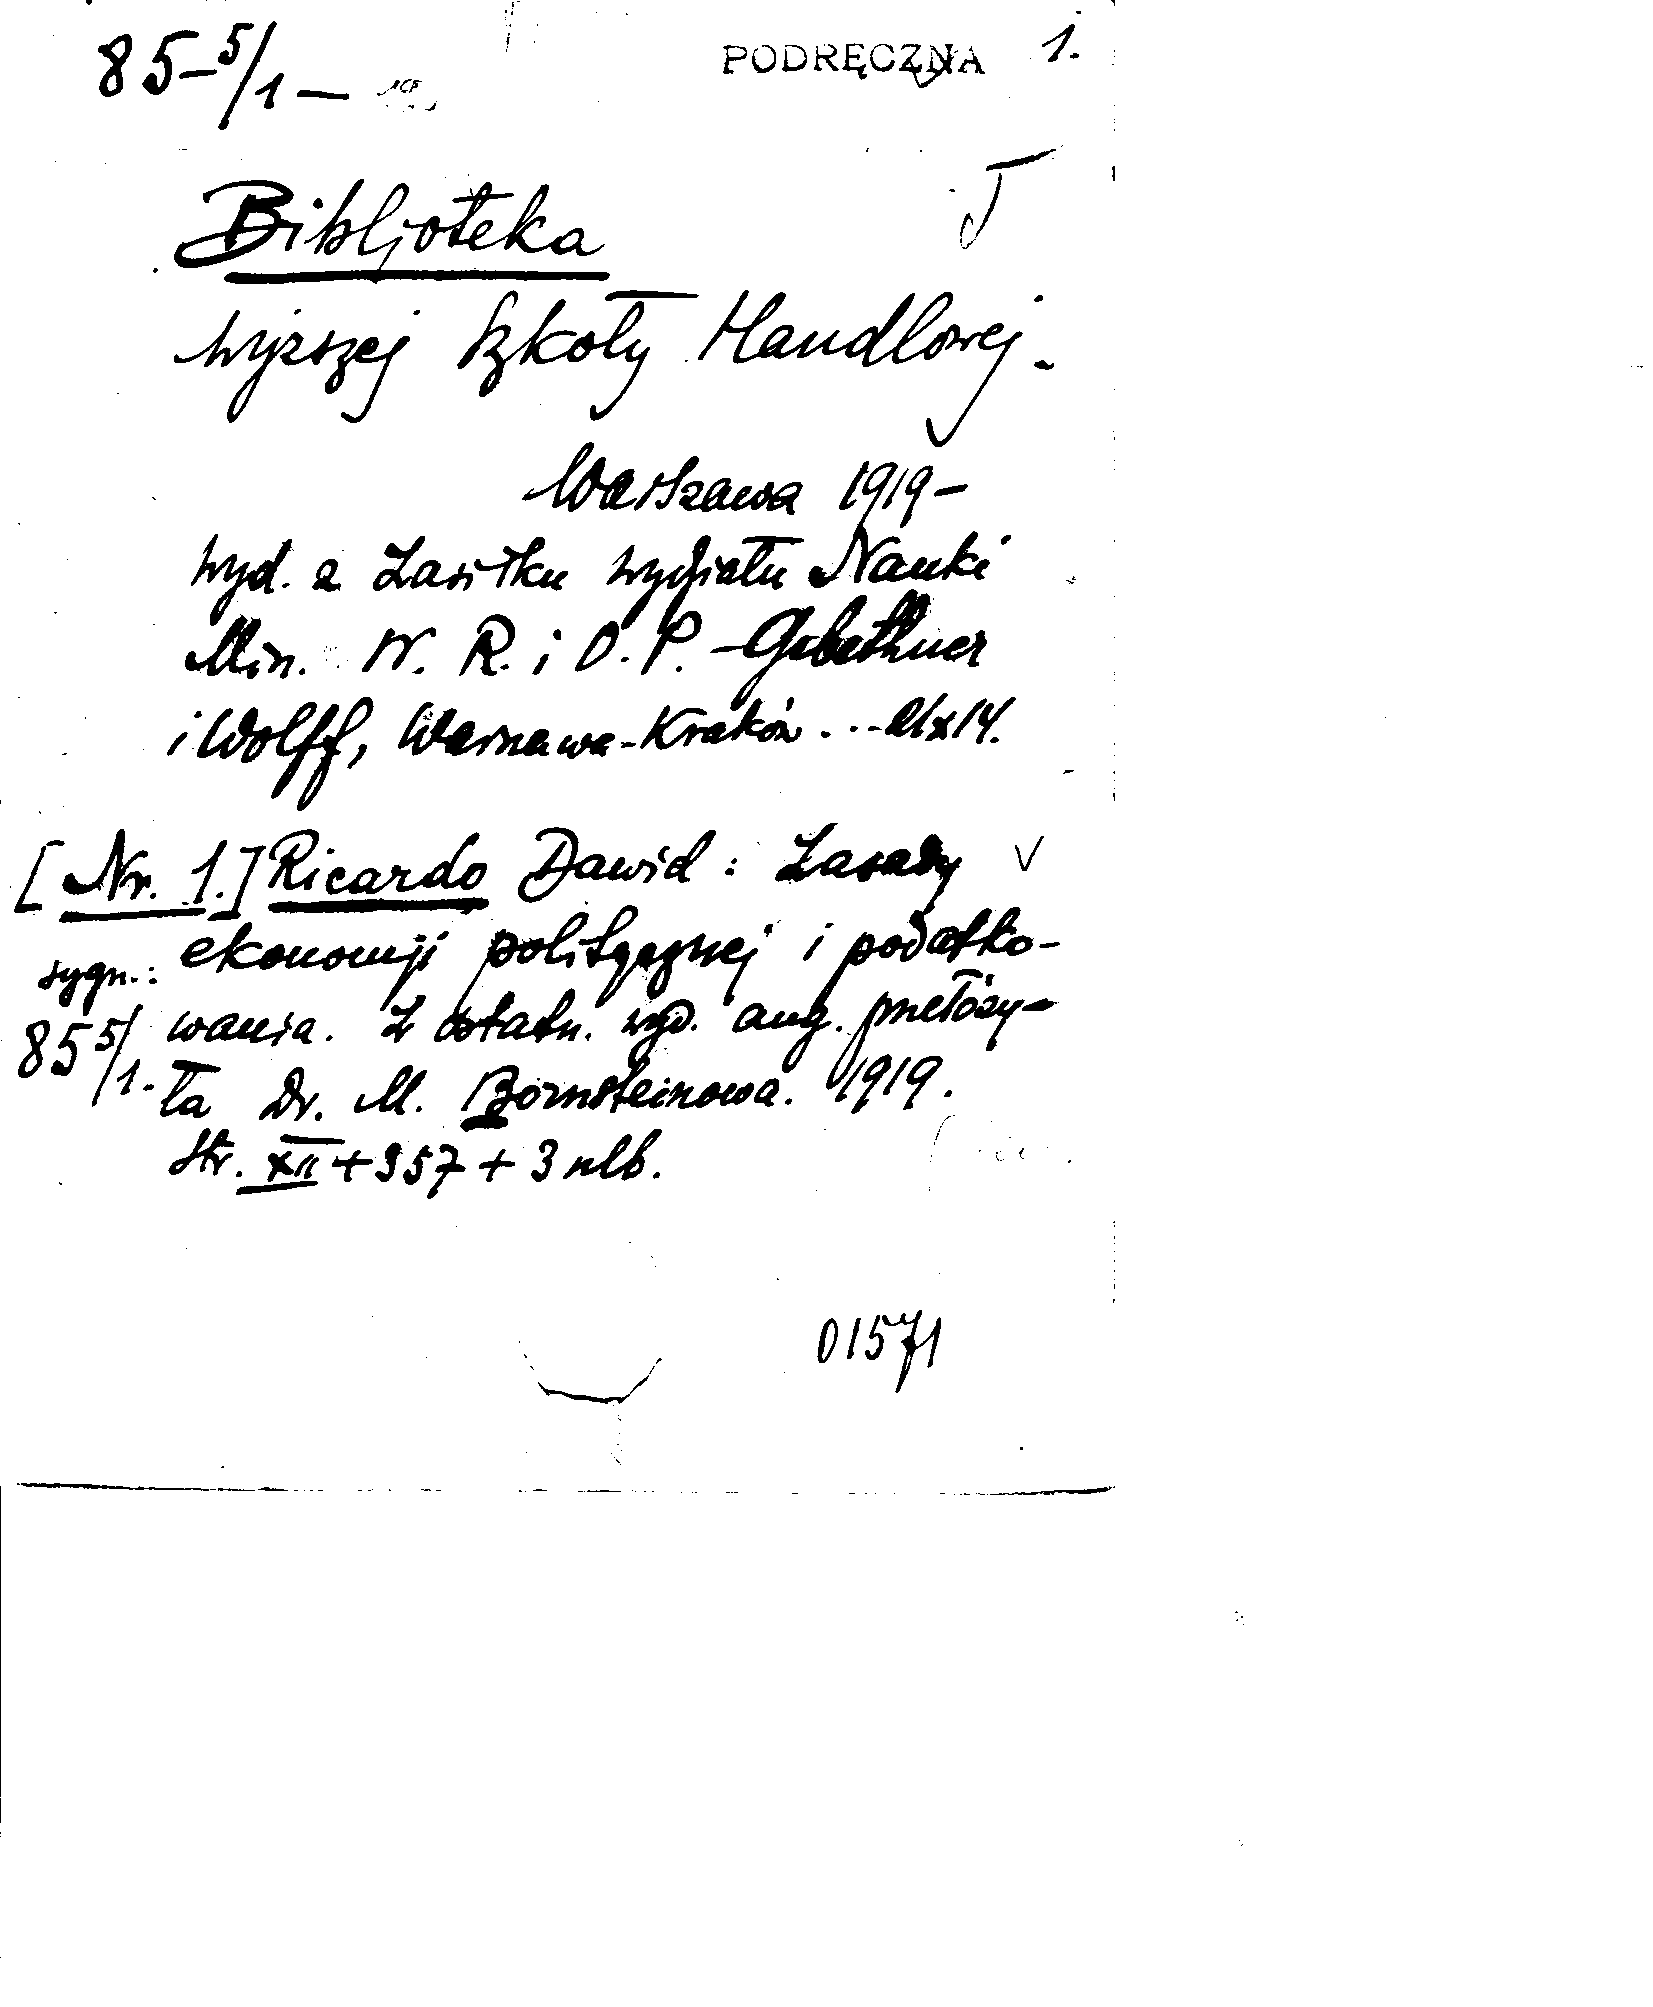 85-5/1 —
PODRĘCZNA 1.
Bibljoteka
Wyższej Szkoły Handlowej.
Warszawa 1919-
Wyd. z Zasiłku Wydziału Nauki
Min. W. R. i O. P. - Gebethner
i Wolff, Warszawa-Kraków ... 21x14.
[Nr. 1.] Ricardo Dawid: Zasady
ekonomji politycznej i podatko-
wania. Z ostatn. wyd. ang. przełoży-
ła Dr. M. Bornsteinowa. 1919.
Str. XII + 357 + 3 nlb.
sygn.:
85 5/1.
01571